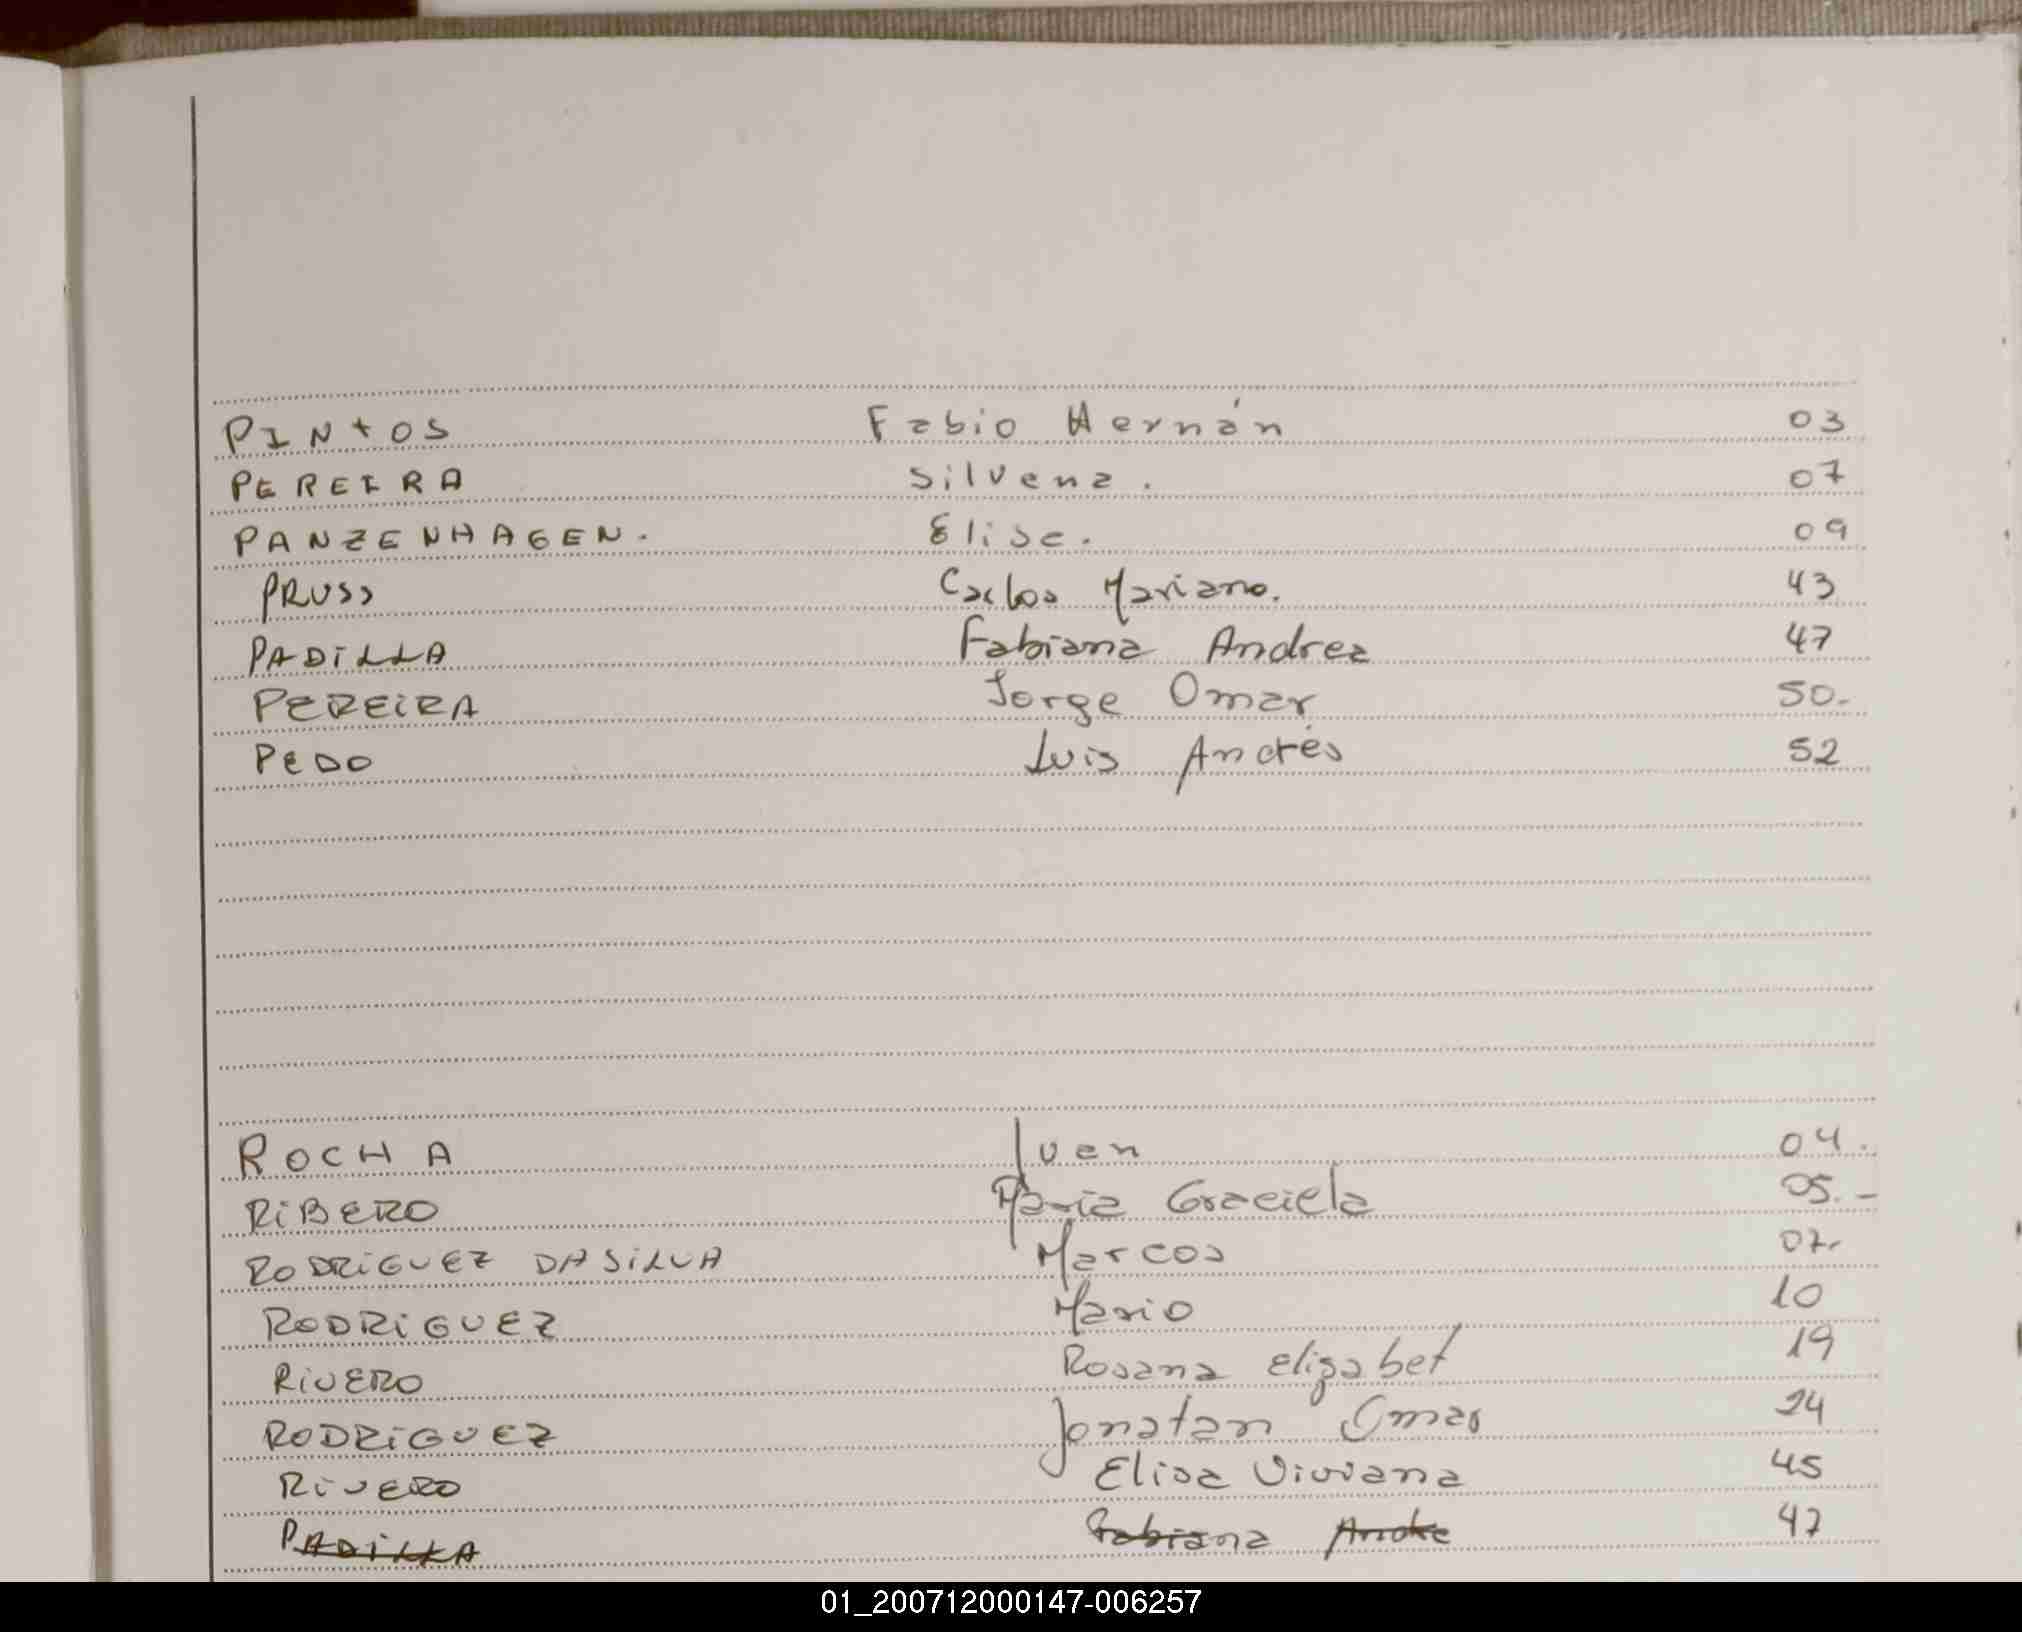 PINtOS Fabio Hernán 03
PEREIRA Silvena. 07
PANZENHAGEN. Elise. 09
PRUSS Carlos Mariano. 43
PADiLLA Fabiana Andrea 47
PEREiRA Jorge Omar 50.-
PEDO Luis Andrés 52
ROCHA Ivan 04.
RiBERO Maria Graciela 05.-
RODRiGUEZ DASiLVA Marcos 07.
RODRiGUEZ Mario 10
RiVERO Rosana Elizabet 19
RODRiGUEZ Jonatan Omar 24
RiVERO Elisa Viviana 45
PADiLLA Fabiana Andre 47
01_200712000147-006257